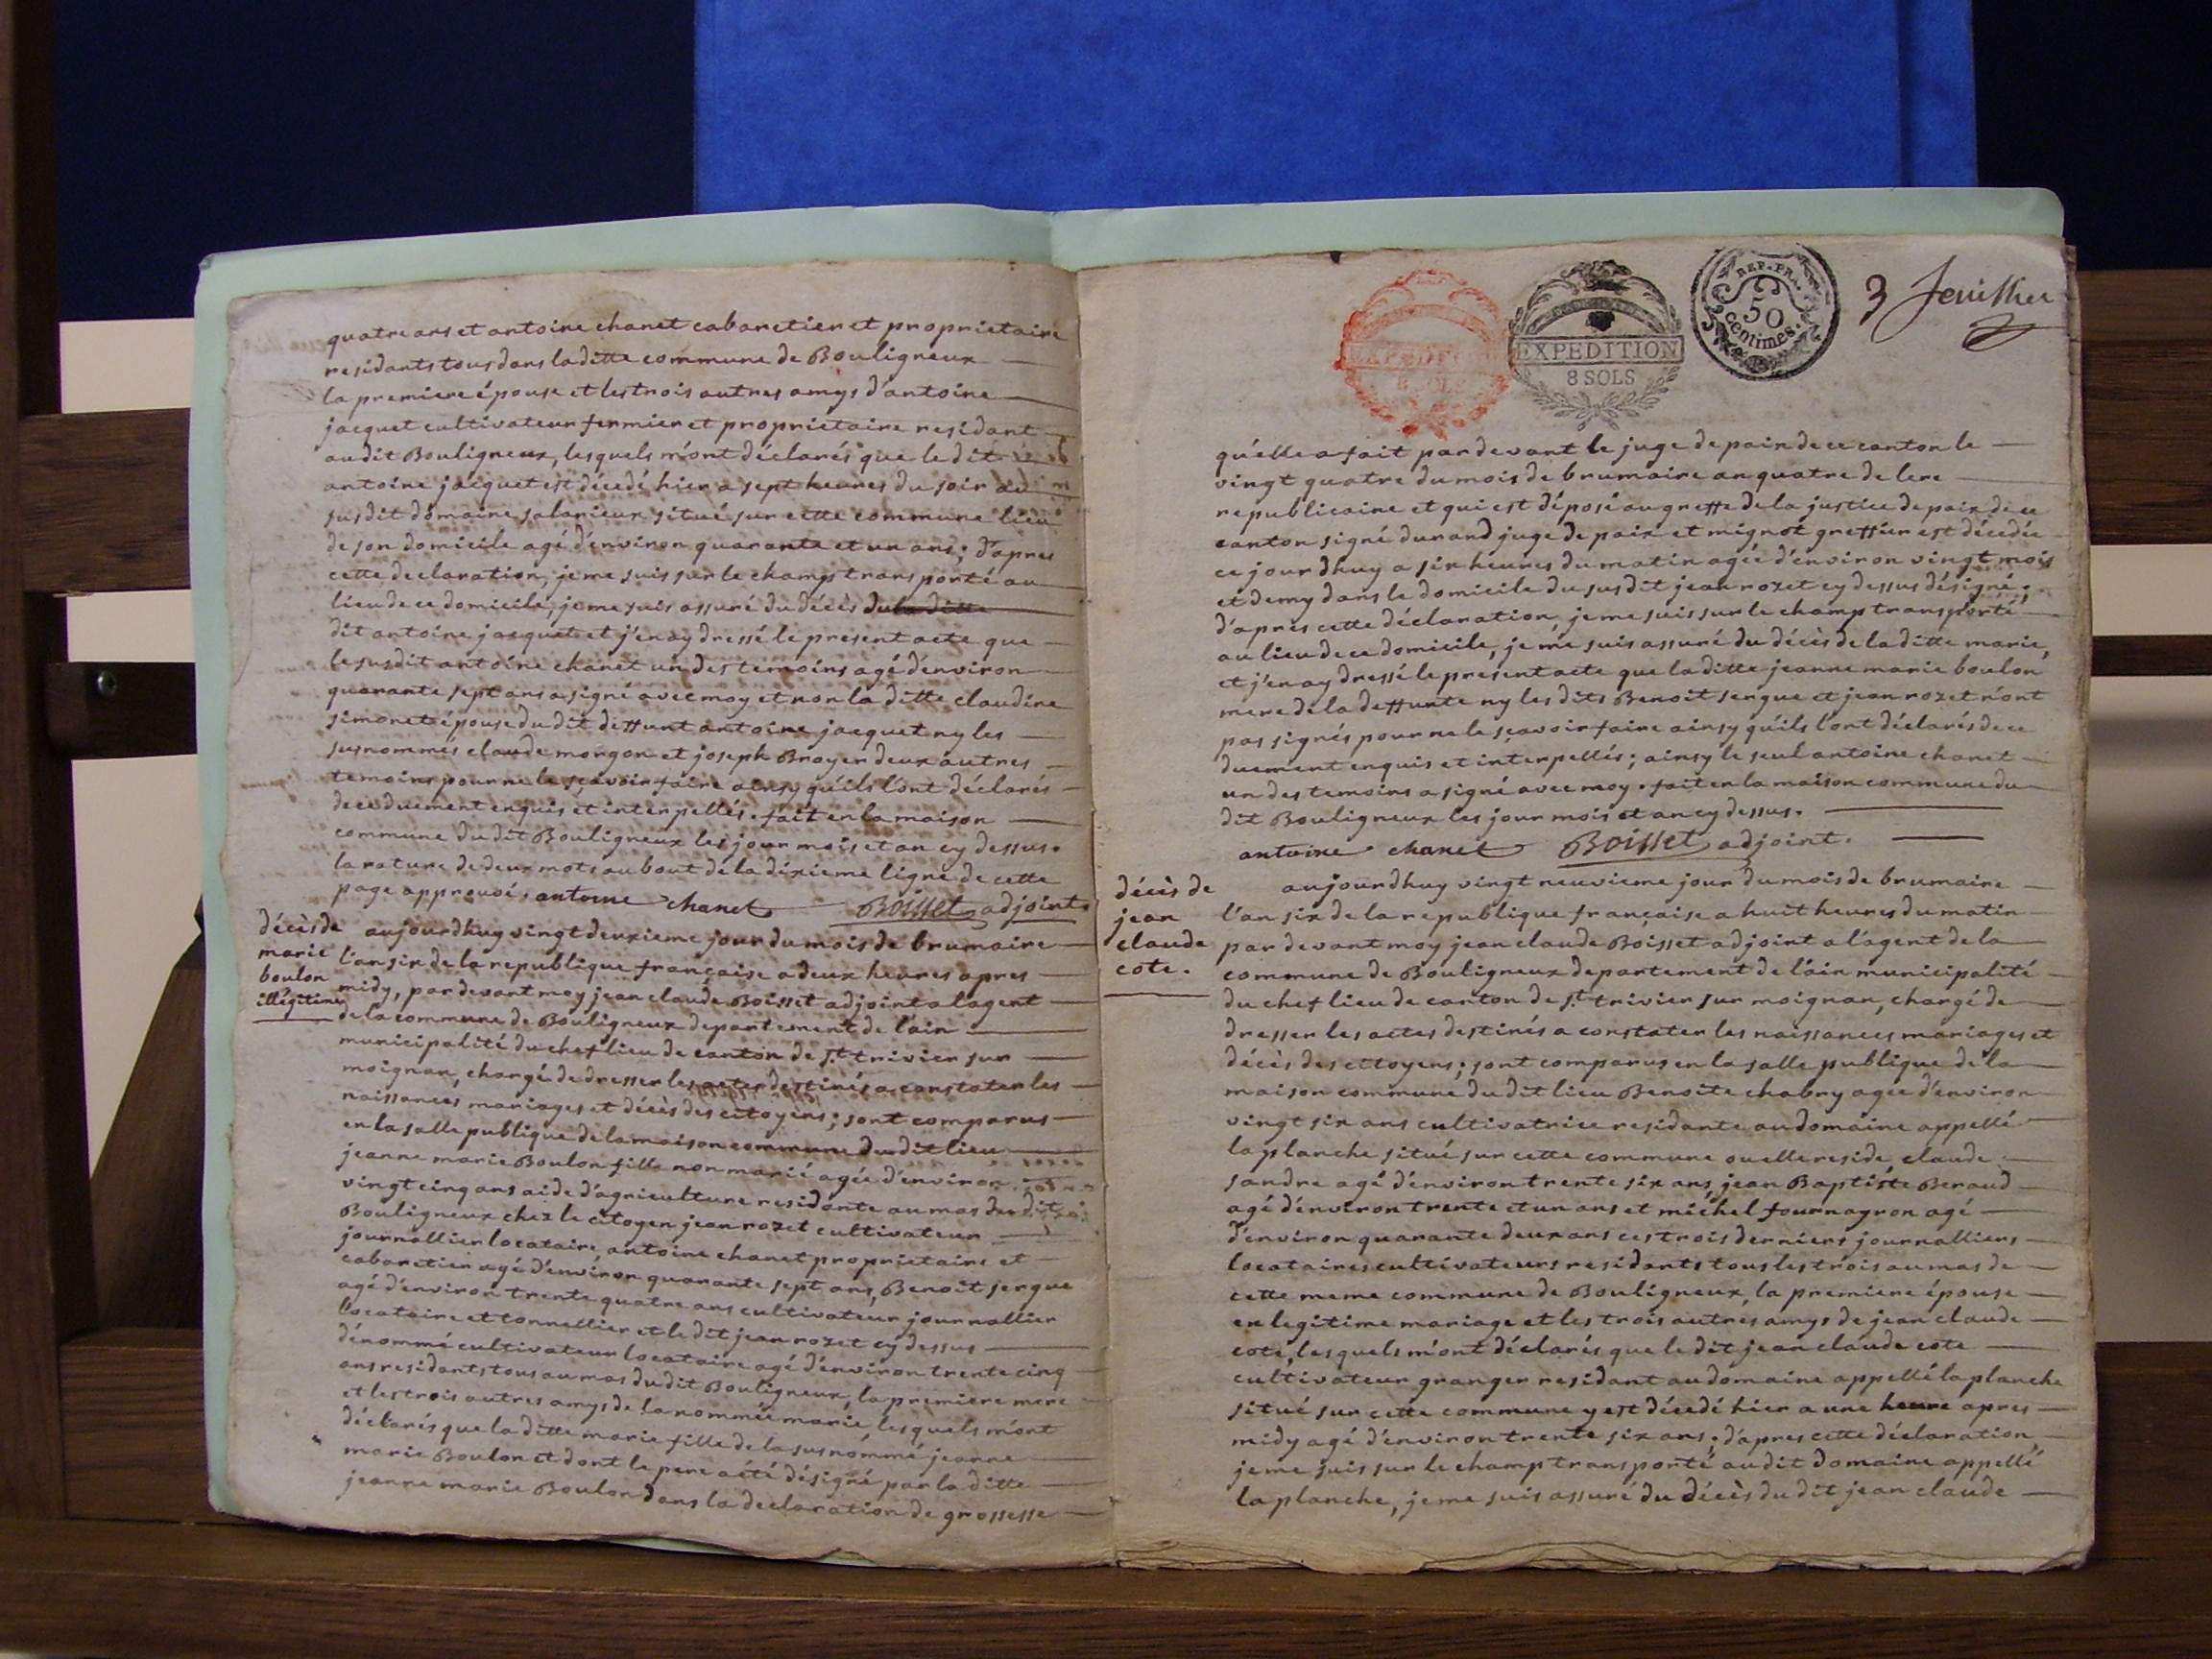 quatre ans et antoine chanet cabaretier et proprietaire
residants tous dans laditte commune de Bouligneux
la premiere épouse et les trois autres amys d'antoine
jacquet cultivateur fermier et proprietaire residant
audit Bouligneux, lesquels m'ont déclarés que ledit
antoine jacquet est décedé hier a sept heures du soir au
susdit domaine salarieux situé sur cette commune lieu
de son domicile agé d'environ quarante et un ans; d'apres
cette declaration, je me suis sur le champs transporté au
lieu de ce domicile, je me suis assuré du décès du la ditte
dit antoine jacquet et j'en ay dressé le present acte que
le susdit antoine chanet un des temoins agé d'environ
quarante sept ans a signé avec moy et non la ditte claudine
simonet épouse du dit deffunt antoine jacquet ny les
susnommés claude morgon et joseph Broyer deux autres
temoins pour ne le sçavoir faire ainsy qu'ils l'ont déclarés
de ce duement enquis et interpellés. fait en la maison
commune du dit Bouligneux les jour mois et an cy dessus.
la rature de deux mots au bout de la dixieme ligne de cette
page approuvé, antoine chanet Boisset adjoint.
décès de
marie
boulon
illégitime
aujourdhuy vingt deuxieme jour du mois de brumaire
l'an six de la republique française a deux heures apres
midy, pardevant moy jean claude Boisset adjoint a l'agent
de la commune de Bouligneux departement de l'ain
municipalité du chef lieu de canton de st trivier sur
moignan, chargé de dresser les actes destinés a constater les
naissances mariages et décès des citoyens; sont comparus
en la salle publique de la maison commune du dit lieu
jeanne marie Boulon fille non marié agée d'environ
vingt cinq ans aide d'agriculture residante au mas du dit
Bouligneux chez le citoyen jean rozet cultivateur
journallier locataire, antoine chanet proprietaire et
cabaretier agé d'environ quarante sept ans, Benoit sergue
agé d'environ trente quatre ans cultivateur journallier
locataire et tonnellier et le dit jean rozet cy dessus
dénommé cultivateur locataire agé d'environ trente cinq
ans residants tous au mas du dit Bouligneux, la premiere mere
et les trois autres amys de la nommée marie, lesquels m'ont
déclarés que la ditte marie fille de la susnommé jeanne
marie Boulon et dont le pere a été désigné par la ditte
jeanne marie Boulon dans la declaration de grossesse
EXPEDITION
8 SOLS
EXPEDITION
8 SOLS
REP. FRA.
50
centimes.
3 feuillet
qu'elle a fait pardevant le juge de paix de ce canton le
vingt quatre du mois de brumaire an quatre de l'ere
republicaine et qui est déposé au greffe de la justice de paix de ce
canton signé durand juge de paix et mignot greffier est décedée
ce jourdhuy a six heures du matin agée d'environ vingt mois
et demy dans le domicile du susdit jean rozet cy dessus désigné;
d'apres cette déclaration, je me suis sur le champ transporté
au lieu de ce domicile, je me suis assuré du décès de la ditte marie,
et j'en ay dressé le present acte que la ditte jeanne marie boulon
mere de la deffunte ny les dits Benoit sergue et jean rozet n'ont
pas signés pour ne le sçavoir faire ainsy qu'ils l'ont déclarés de ce
duement enquis et interpellés; ainsy le seul antoine chanet
un des temoins a signé avec moy. fait en la maison commune du
dit Bouligneux les jour mois et an cy dessus.
antoine chanet Boisset adjoint.
décès de
jean
claude
cote.
aujourdhuy vingt neuvieme jour du mois de brumaire
l'an six de la republique française a huit heures du matin
par devant moy jean claude Boisset adjoint a l'agent de la
commune de Bouligneux departement de l'ain municipalité
du chef lieu de canton de st trivier sur moignan, chargé de
dresser les actes destinés a constater les naissances mariages et
décès des citoyens; sont comparus en la salle publique de la
maison commune du dit lieu Benoite chabry agée d'environ
vingt six ans cultivatrice residante au domaine appellé
la planche situé sur cette commune ou elle reside claude
sandre agé d'environ trente six ans, jean Baptiste Beraud
agé d'environ trente et un ans et michel fournayron agé
d'environ quarante deux ans ces trois derniers journalliers
locataires cultivateurs residants tous les trois au mas de
cette meme commune de Bouligneux, la premiere épouse
en legitime mariage et les trois autres amys de jean claude
cote, lesquels m'ont déclarés que le dit jean claude cote
cultivateur granger residant au domaine appellé la planche
situé sur cette commune y est décedé hier a une heure apres
midy agé d'environ trente six ans; d'apres cette déclaration,
je me suis sur le champ transporté audit domaine appellé
la planche, je me suis assuré du décès du dit jean claude